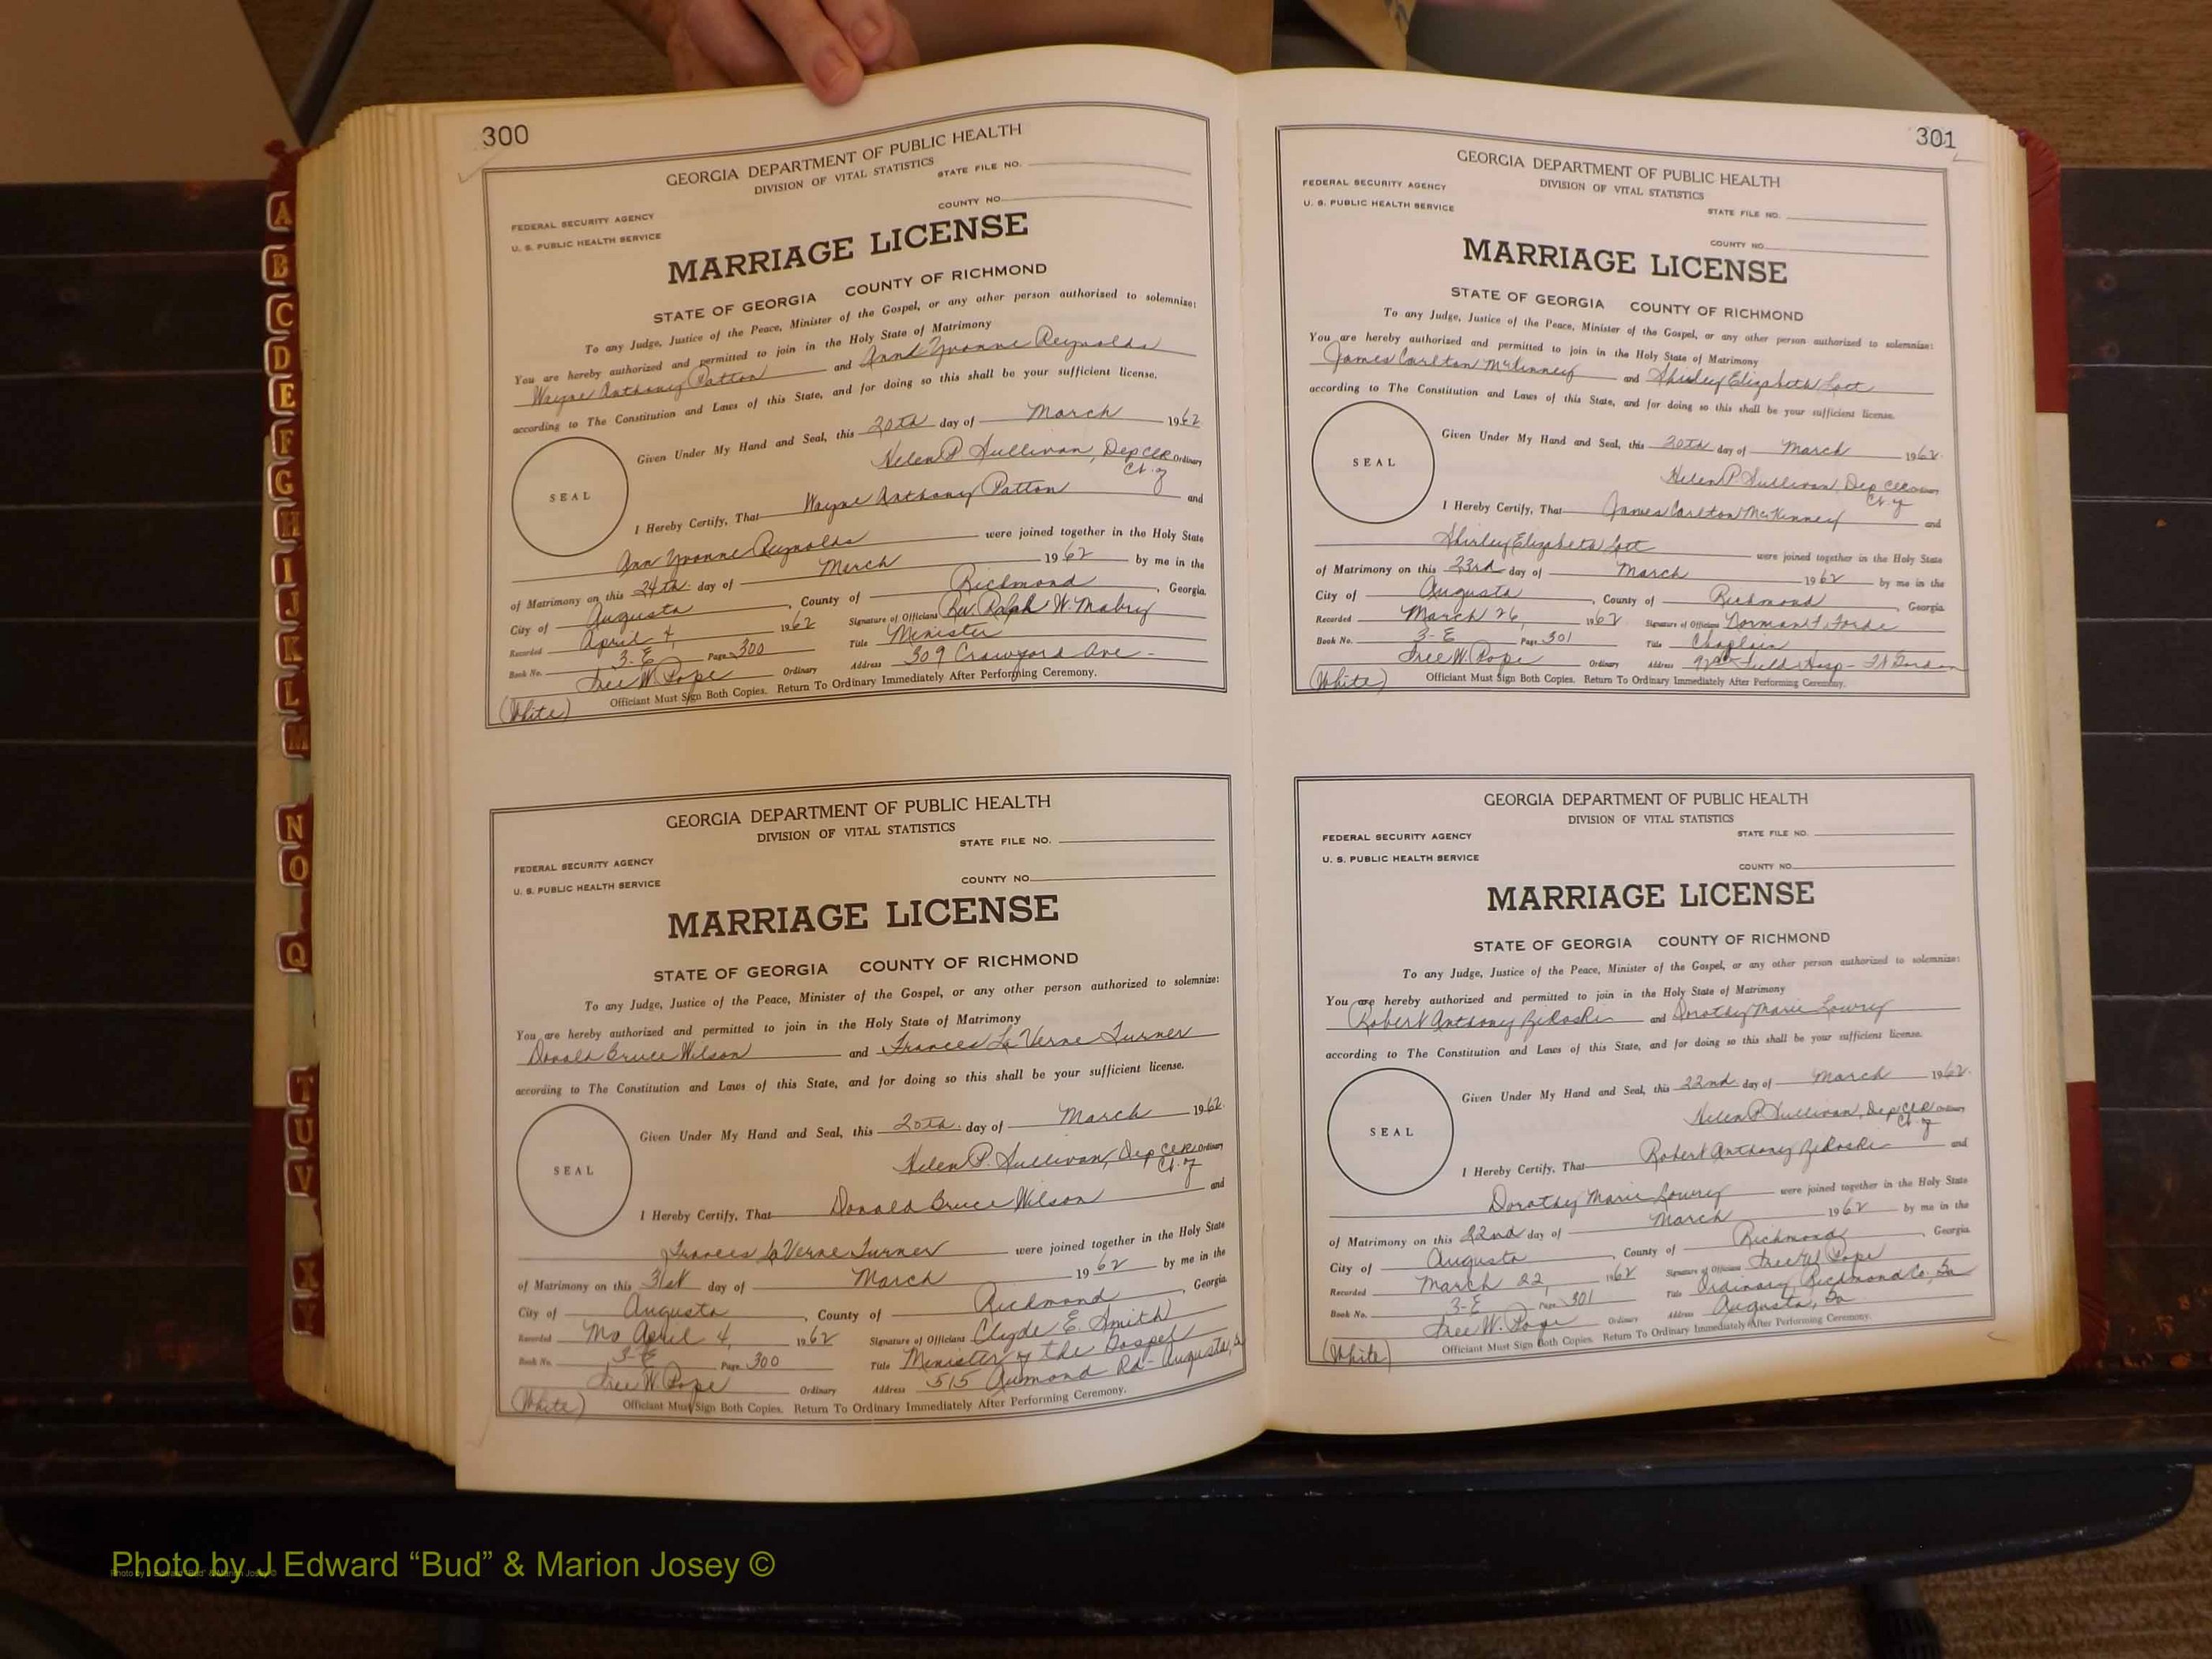 300
GEORGIA DEPARTMENT OF PUBLIC HEALTH
DIVISION OF VITAL STATISTICS
STATE FILE NO.
COUNTY NO.
FEDERAL SECURITY AGENCY
U. S. PUBLIC HEALTH SERVICE
MARRIAGE LICENSE
STATE OF GEORGIA COUNTY OF RICHMOND
To any Judge, Justice of the Peace, Minister of the Gospel, or any other person authorized to solemnize:
You are hereby authorized and permitted to join in the Holy State of Matrimony
Wayne Anthony Patton and Ann Yvonne Reynolds
according to The Constitution and Laws of this State, and for doing so this shall be your sufficient license.
Given Under My Hand and Seal, this 20th day of March 1962
SEAL
Helen P. Sullivan, Dep Clk Ordinary
I Hereby Certify, That Wayne Anthony Patton and
Ann Yvonne Reynolds were joined together in the Holy State
of Matrimony on this 24th day of March 1962 by me in the
City of Augusta, County of Richmond, Georgia.
Recorded April 4, 1962 Signature of Officiant Rev. Ralph W. Mabry
Book No. 3-E Page 300 Title Minister
Tree W. Pope Ordinary Address 309 Crawford Ave -
(White) Officiant Must Sign Both Copies. Return To Ordinary Immediately After Performing Ceremony.
GEORGIA DEPARTMENT OF PUBLIC HEALTH
DIVISION OF VITAL STATISTICS
STATE FILE NO.
FEDERAL SECURITY AGENCY
U. S. PUBLIC HEALTH SERVICE
COUNTY NO.
MARRIAGE LICENSE
STATE OF GEORGIA COUNTY OF RICHMOND
To any Judge, Justice of the Peace, Minister of the Gospel, or any other person authorized to solemnize:
You are hereby authorized and permitted to join in the Holy State of Matrimony
Donald Bruce Wilson and Frances La Verne Turner
according to The Constitution and Laws of this State, and for doing so this shall be your sufficient license.
Given Under My Hand and Seal, this 20th day of March 1962
SEAL
Helen P. Sullivan, Dep Clk Ordinary
I Hereby Certify, That Donald Bruce Wilson and
Frances La Verne Turner were joined together in the Holy State
of Matrimony on this 31st day of March 1962 by me in the
City of Augusta, County of Richmond, Georgia.
Recorded April 4, 1962 Signature of Officiant Clyde E. Smith
Book No. 3-E Page 300 Title Minister of the Gospel
Tree W. Pope Ordinary Address 515 Aumond Rd - Augusta,
(White) Officiant Must Sign Both Copies. Return To Ordinary Immediately After Performing Ceremony.
301
GEORGIA DEPARTMENT OF PUBLIC HEALTH
DIVISION OF VITAL STATISTICS
FEDERAL SECURITY AGENCY
U. S. PUBLIC HEALTH SERVICE
STATE FILE NO.
COUNTY NO.
MARRIAGE LICENSE
STATE OF GEORGIA COUNTY OF RICHMOND
To any Judge, Justice of the Peace, Minister of the Gospel, or any other person authorized to solemnize:
You are hereby authorized and permitted to join in the Holy State of Matrimony
James Carlton McKinney and Shirley Elizabeth Lott
according to The Constitution and Laws of this State, and for doing so this shall be your sufficient license.
Given Under My Hand and Seal, this 20th day of March 1962
SEAL
Helen P. Sullivan, Dep Clk Ordinary
I Hereby Certify, That James Carlton McKinney and
Shirley Elizabeth Lott were joined together in the Holy State
of Matrimony on this 23rd day of March 1962 by me in the
City of Augusta, County of Richmond, Georgia
Recorded March 26, 1962 Signature of Officiant Dorman F. Forde
Book No. 3-E Page 301 Title Chaplain
Tree W. Pope Ordinary Address 92nd Field Hosp - Ft Gordon
(White) Officiant Must Sign Both Copies. Return To Ordinary Immediately After Performing Ceremony.
GEORGIA DEPARTMENT OF PUBLIC HEALTH
DIVISION OF VITAL STATISTICS
FEDERAL SECURITY AGENCY STATE FILE NO.
U. S. PUBLIC HEALTH SERVICE
COUNTY NO.
MARRIAGE LICENSE
STATE OF GEORGIA COUNTY OF RICHMOND
To any Judge, Justice of the Peace, Minister of the Gospel, or any other person authorized to solemnize:
You are hereby authorized and permitted to join in the Holy State of Matrimony
Robert Anthony and Dorothy Marie Lowry
according to The Constitution and Laws of this State, and for doing so this shall be your sufficient license.
Given Under My Hand and Seal, this 22nd day of March 1962
SEAL
Helen P. Sullivan, Dep Clk Ordinary
I Hereby Certify, That Robert Anthony and
Dorothy Marie Lowry were joined together in the Holy State
of Matrimony on this 22nd day of March 1962 by me in the
City of Augusta, County of Richmond, Georgia
Recorded March 22, 1962 Signature of Officiant Tree W. Pope
Book No. 3-E Page 301 Title Ordinary Richmond Co., Ga
Tree W. Pope Ordinary Address Augusta, Ga
(White) Officiant Must Sign Both Copies. Return To Ordinary Immediately After Performing Ceremony.
A
B
C
D
E
F
G
H
I
J
K
L
M
N
O
Q
T
U
V
X
Y
Photo by J Edward “Bud” & Marion Josey ©
Photo by J Edward "Bud" & Marion Josey ©